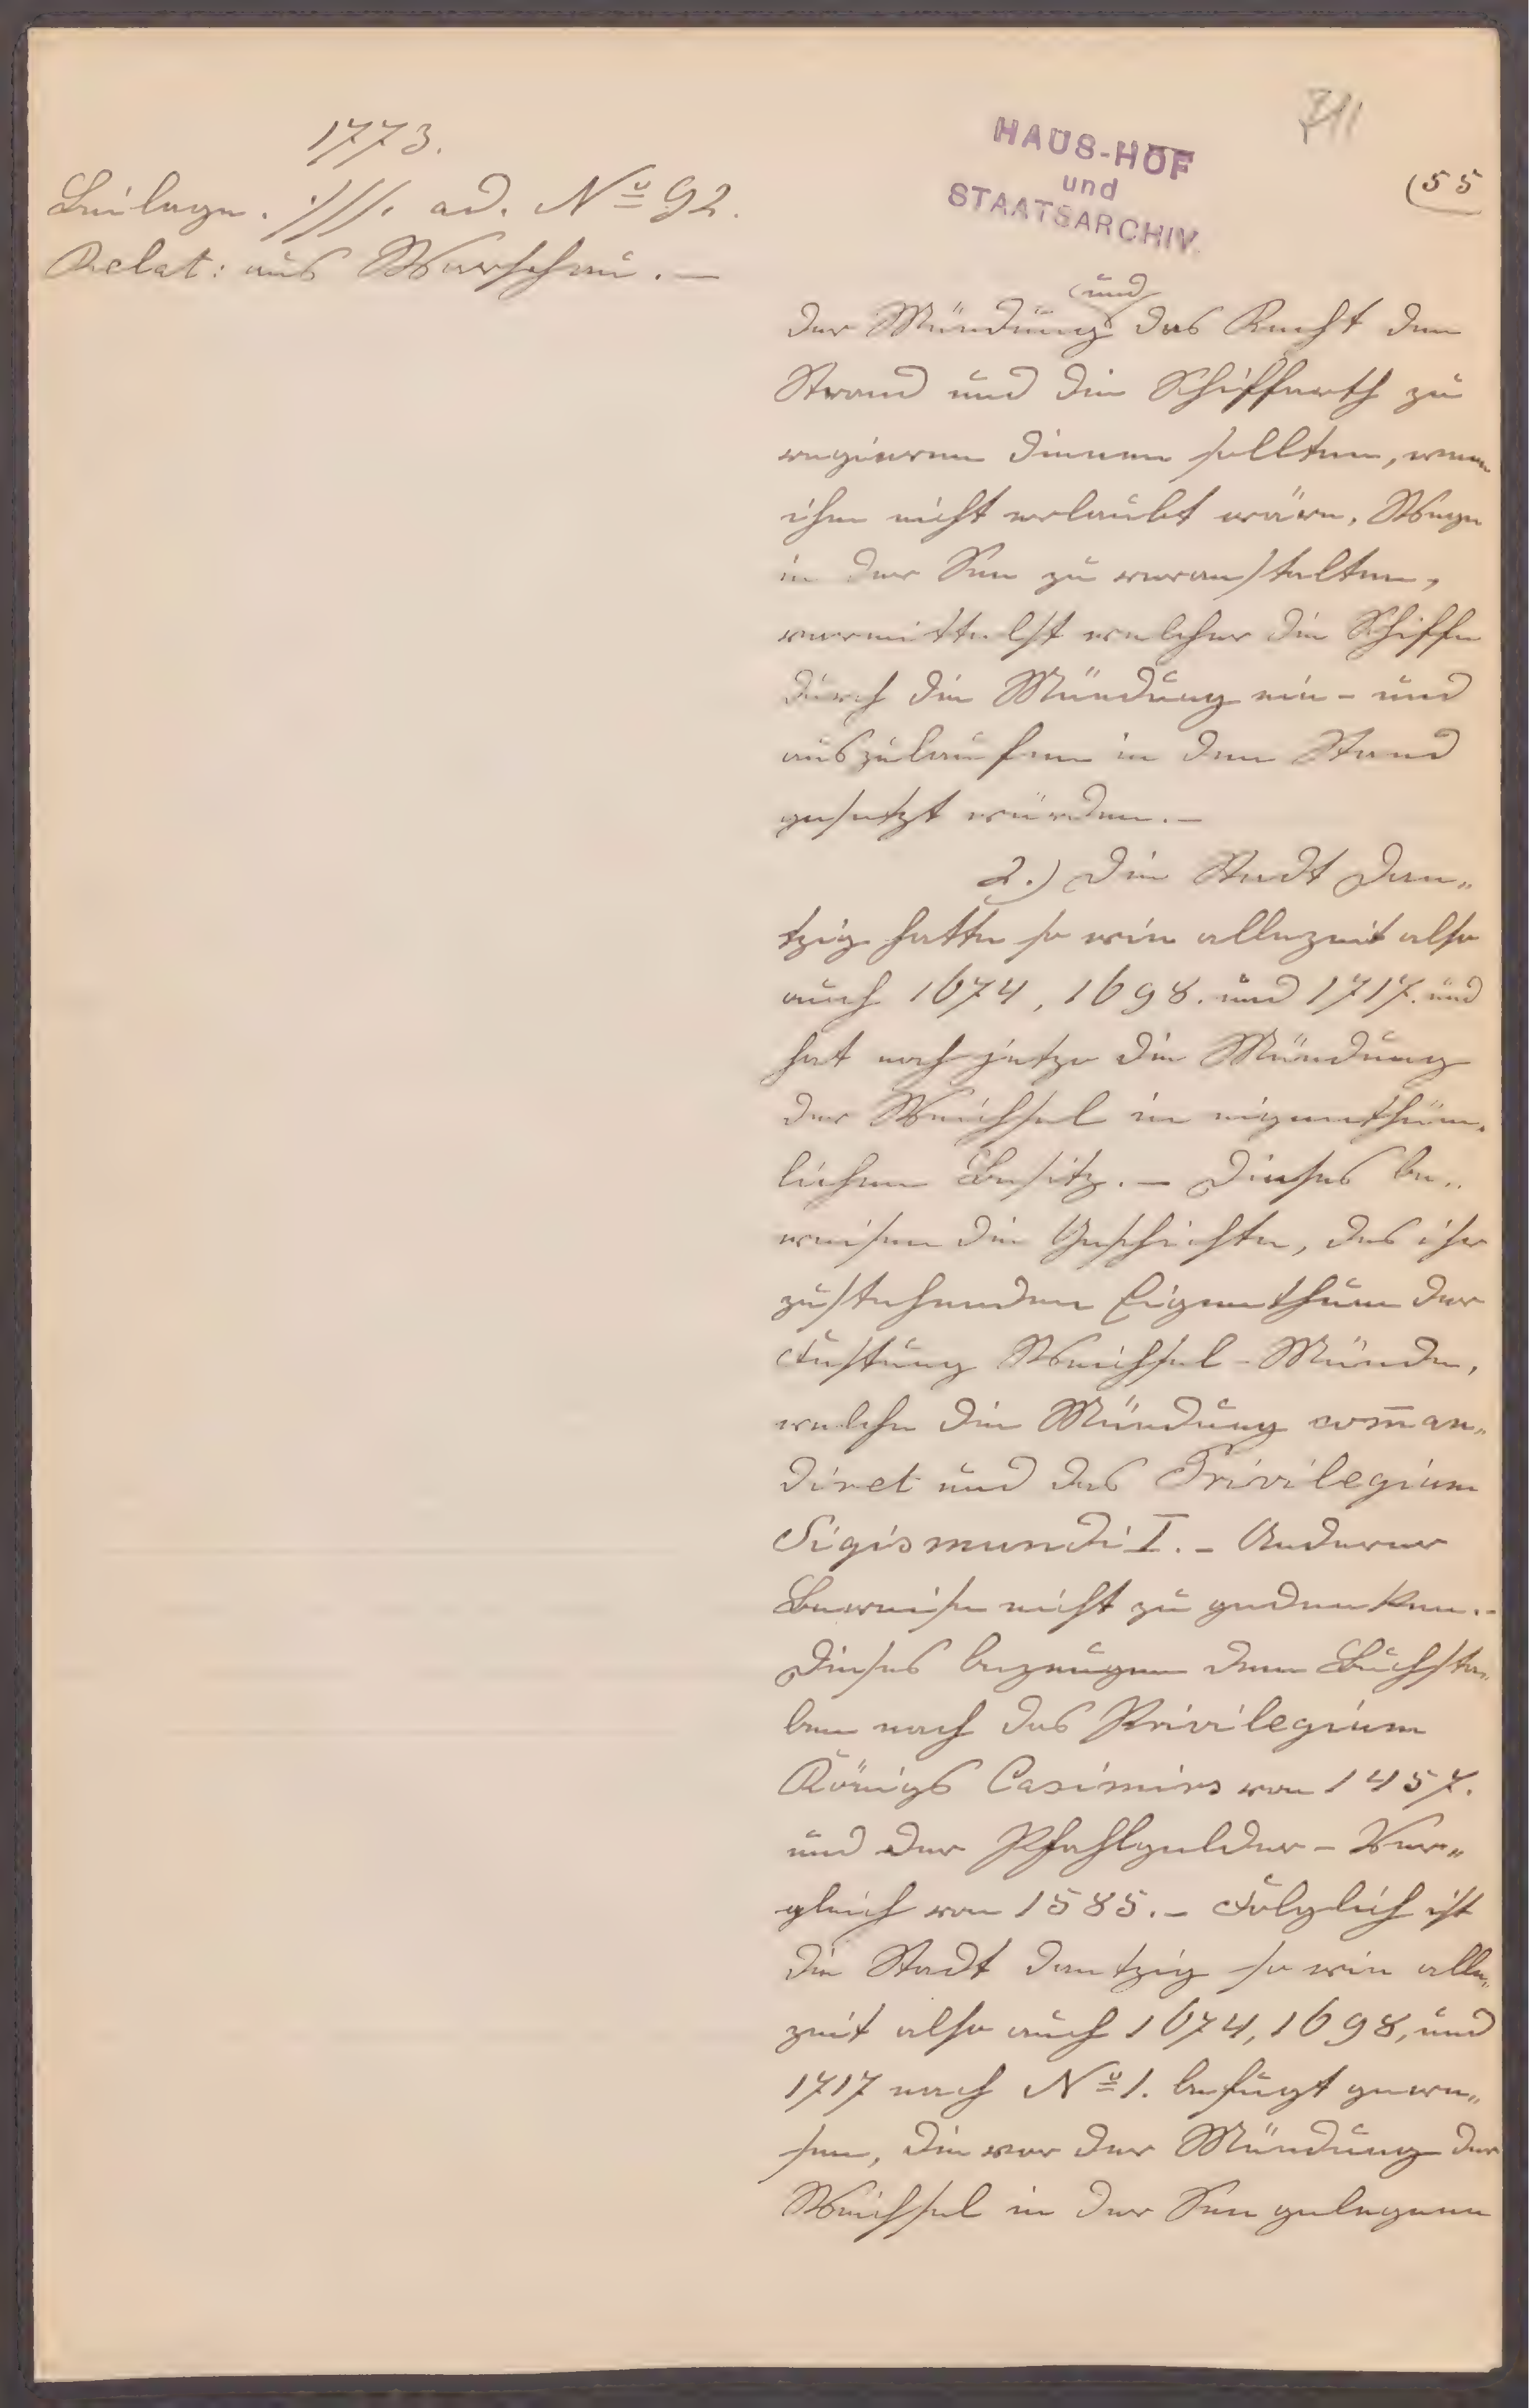 1773.
Beilage ·///. ad. No 92.
Relat: aus Warschau. —
HAUS-HOF
und
STAATSARCHIV.
(55
und
der Mündung das Recht den
Strand und die Schiffarth zu
regieren dienen sollten, wenn
ihm nicht erlaubt wäre, Wege
in der See zu veranstalten,
vermittelst welcher die Schiffe
durch die Mündung ein- und
auszulaufen in den Stand
gesetzt würden. —
2.) Die Stadt Dan„
tzig hatte so wie allezeit also
auch 1674, 1698. und 1717. und
hat noch jetzo die Mündung
der Weichsel in eigenthüm„
lichen Besitz. — Dieses be„
weisen die Geschichte, das ihr
zustehenden Eigenthum der
Festung Weichsel-Münde,
welche die Mündung com̅an„
diret und das Privilegium
Sigismundi I. — Anderer
Beweise nicht zu gedenken. —
Dieses bezeugen dem Buchsta„
ben nach das Privilegium
Königs Casimirs von 1457.
und der Pfahlgelder-Ver„
gleich von 1585. — Folglich ist
die Stadt Dantzig so wie alle„
zeit also auch 1674, 1698, und
1717 nach No 1. befugt gewe„
sen, die vor der Mündung der
Weichsel in der See gelegene